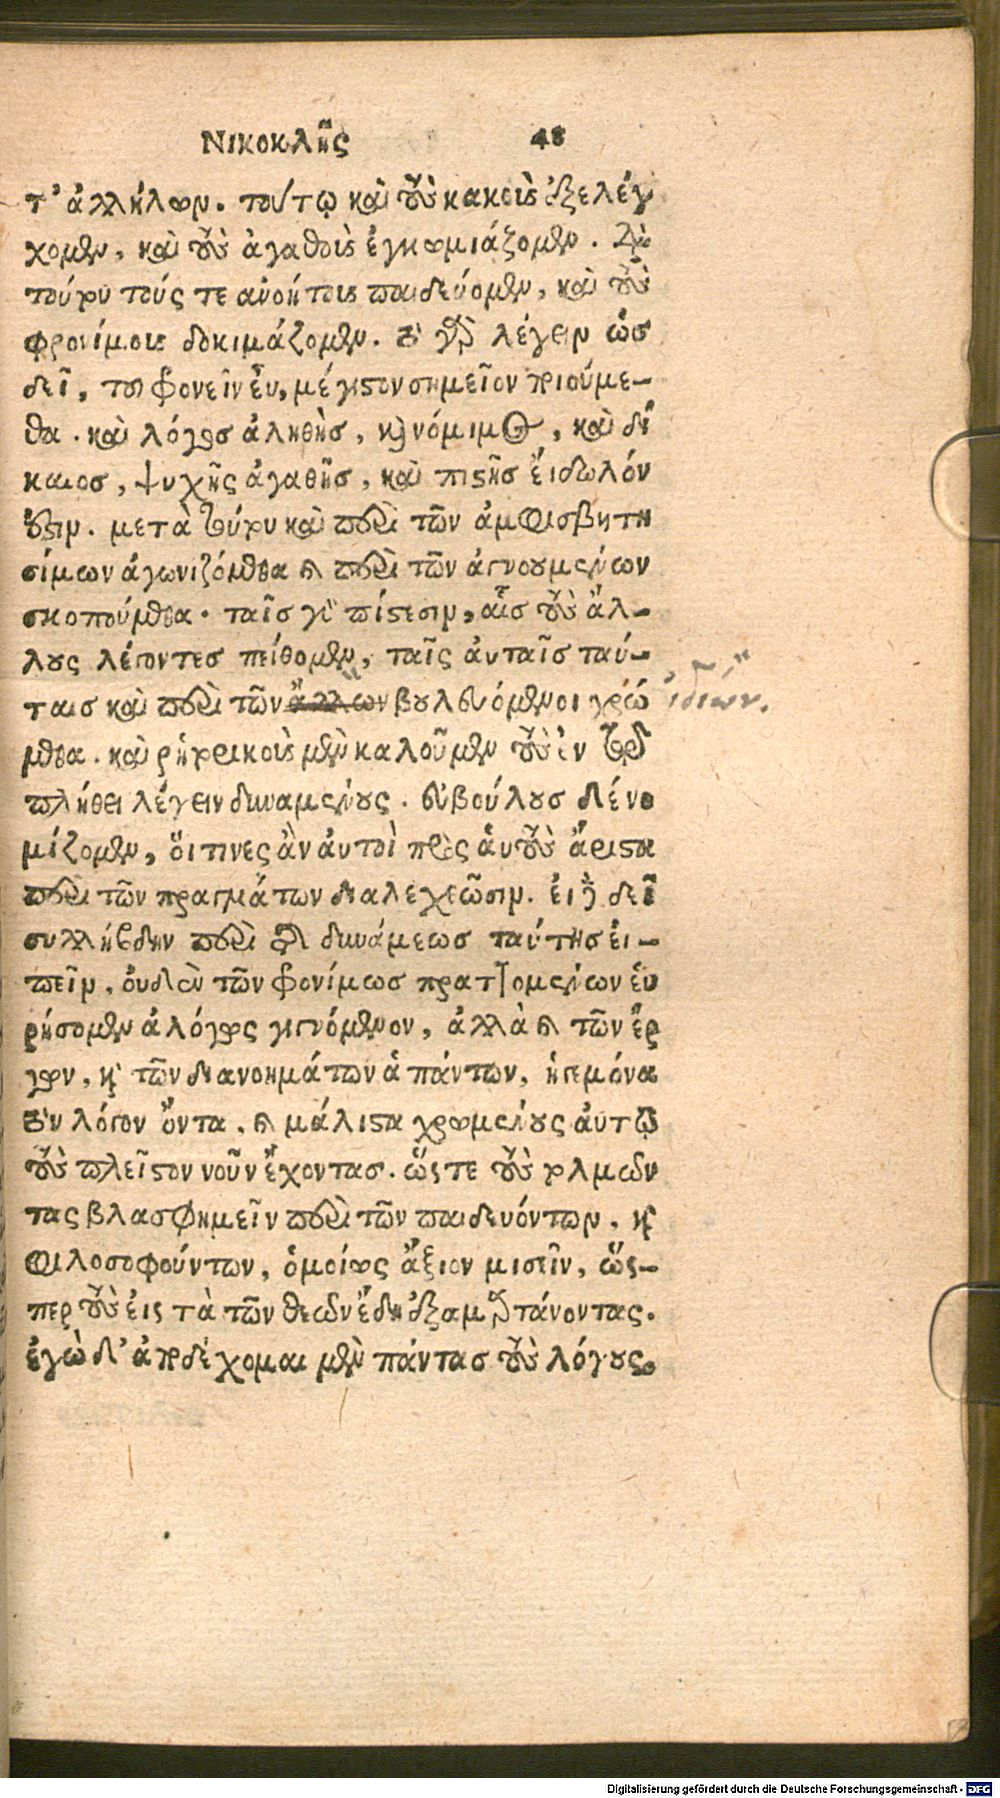 Νικοκλῆς 48
τ' ἀλλήλων. τούτῳ καὶ τοὺς κακοὺς ἐξελέγ
χομεν, καὶ τοὺς ἀγαθοὺς ἐγκωμιάζομεν. διὰ
τούτου τούς τε ἀνοήτους παιδεύομεν, καὶ τοὺς
φρονίμους δοκιμάζομεν. τὸ γὰρ λέγειν ὡς
δεῖ, τοῦ φρονεῖν εὖ, μέγιστον σημεῖον ποιούμε-
θα. καὶ λόγος ἀληθὴς, καὶ νόμιμος, καὶ δί
καιος, ψυχῆς ἀγαθῆς, καὶ πιστῆς εἴδωλόν
ἐστιν. μετὰ τούτου καὶ περὶ τῶν ἀμφισβητη
σίμων ἀγωνιζόμεθα καὶ περὶ τῶν ἀγνοουμένων
σκοπούμεθα. ταῖς γὰρ πίστεσιν, αἷς τοὺς ἄλ-
λους λέγοντες πείθομεν, ταῖς αὐταῖς ταύ-
ταις καὶ περὶ τῶν ἄλλων βουλευόμενοι χρώ ἰδίων.
μεθα. καὶ ῥητορικοὺς μὲν καλοῦμεν τοὺς ἐν τῷ
πλήθει λέγειν δυναμένους. εὐβούλους δὲ νο
μίζομεν, οἵτινες ἂν αὐτοὶ πρὸς αὑτοὺς ἄριστα
περὶ τῶν πραγμάτων διαλεχθῶσιν. εἰ δὲ δεῖ
συλλήβδην περὶ τῆς δυνάμεως ταύτης εἰ-
πεῖν, οὐδὲν τῶν φρονίμως πραττομένων εὑ
ρήσομεν ἀλόγως γιγνόμενον, ἀλλὰ καὶ τῶν ἔρ
γων, καὶ τῶν διανοημάτων ἁπάντων, ἡγεμόνα
τὸν λόγον ὄντα, καὶ μάλιστα χρωμένους αὐτῷ
τοὺς πλεῖστον νοῦν ἔχοντας. ὥστε τοὺς τολμῶν
τας βλασφημεῖν περὶ τῶν παιδευόντων, καὶ
φιλοσοφούντων, ὁμοίως ἄξιον μισεῖν, ὥς-
περ τοὺς εἰς τὰ τῶν θεῶν ἕδη ἐξαμαρτάνοντας.
ἐγὼ δ' ἀποδέχομαι μὲν πάντας τοὺς λόγους.
Digitalisierung gefördert durch die Deutsche Forschungsgemeinschaft - DFG